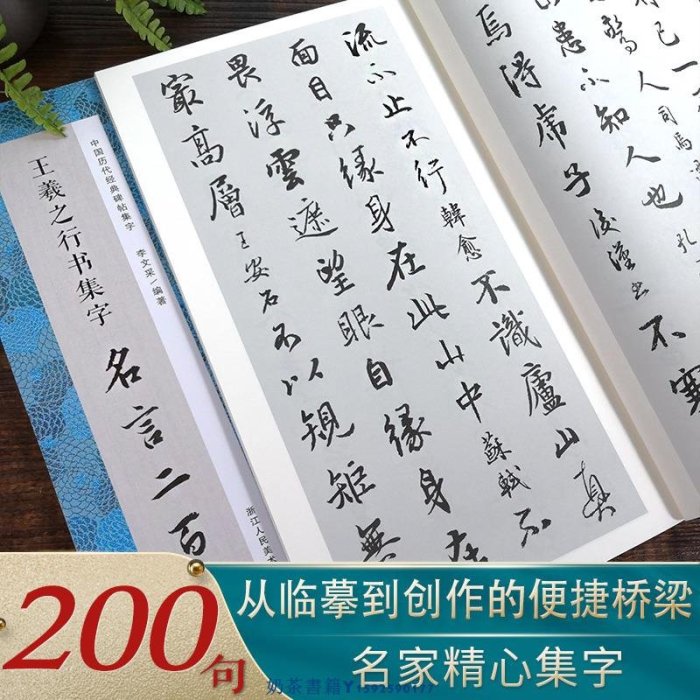 中国历代经典碑帖集字
李文采 编著
王羲之行书集字
名言二百
浙江人民美术
己一
驚人司馬
患不知人也孔
焉得虎子後漢書不
流不止不行韓愈不識廬山真
面目只緣身在此山中蘇軾不
畏浮雲遮望眼自緣身在
最高層王安石不以規矩無
200句
从临摹到创作的便捷桥梁
名家精心集字
奶茶書籍Y1592590177